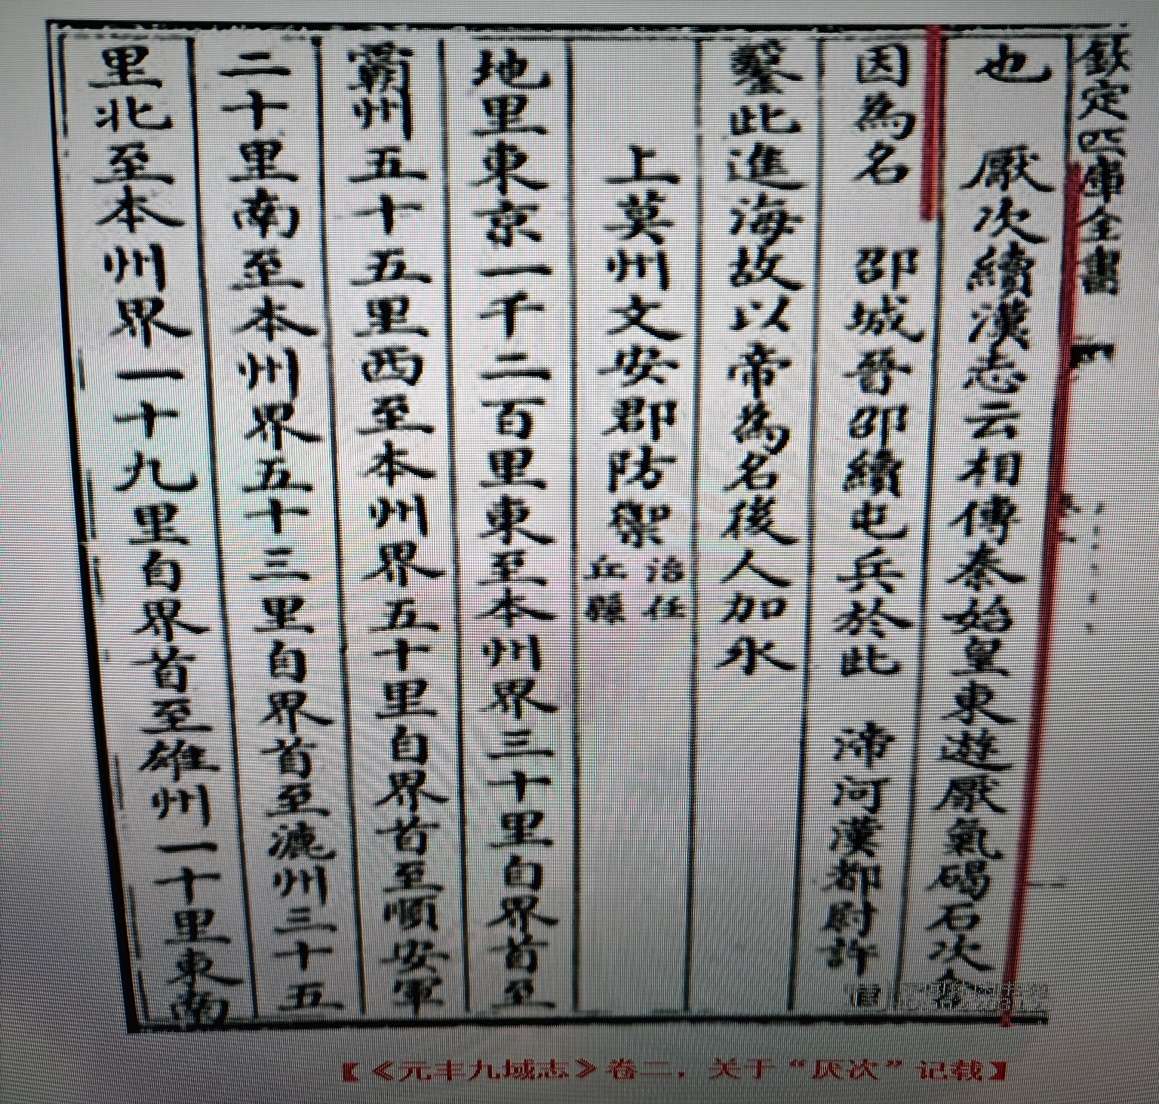 欽定四庫全書
也　厭次續漢志云相傳秦始皇東遊厭氣碣石次
因為名　邵城晉邵續屯兵於此　渧河漢都尉許
鑿此進海故以帝為名後人加水
上莫州文安郡防禦治任丘縣
地里東京一千二百里東至本州界三十里自界首至
霸州五十五里西至本州界五十里自界首至順安軍
二十里南至本州界五十三里自界首至瀛州三十五
里北至本州界一十九里自界首至雄州一十里東南
【《元丰九域志》卷二，关于“厌次”记载】